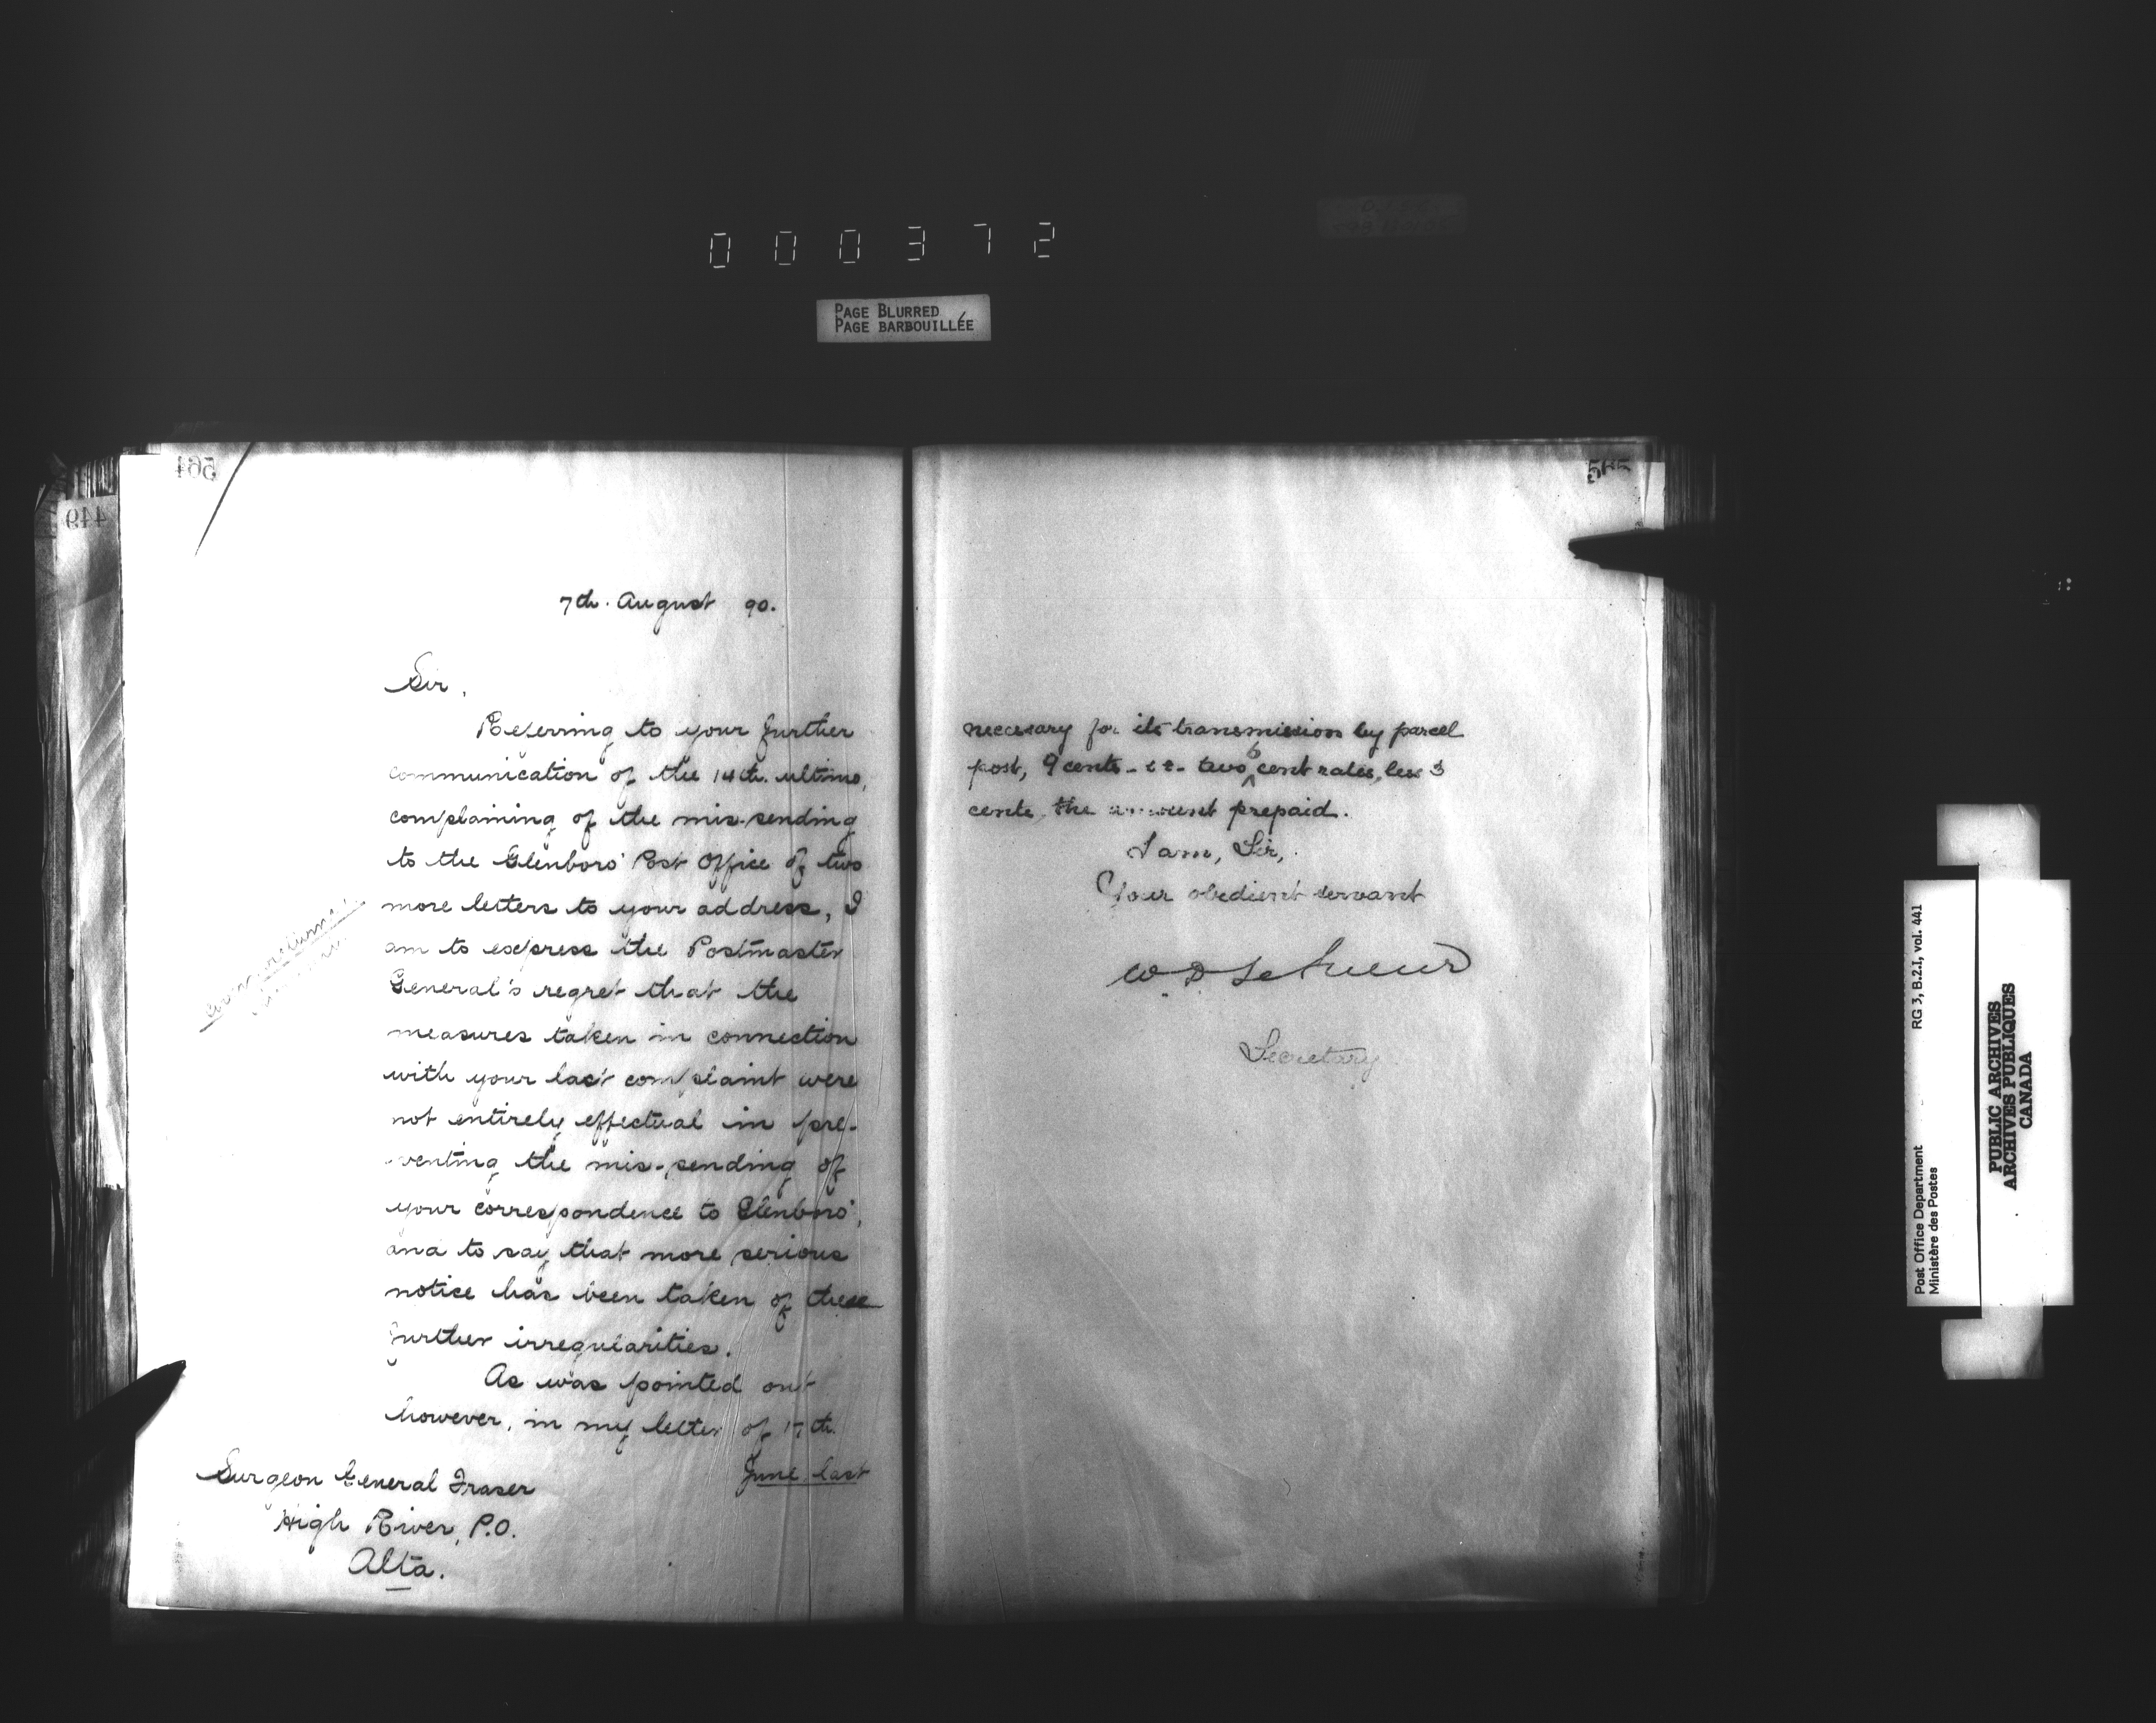 000372
PAGE BLURRED
PAGE BARBOUILLÉE
564
449
7th. August 90.
Sir,
Referring to your further
communication of the 14th. ultimo,
complaining of the mis-sending
to the Glenboro' Post Office of two
more letters to your address, I
am to express the Postmaster
General's regret that the
measures taken in connection
with your last complaint were
not entirely effectual in pre-
venting the mis-sending of
your correspondence to Glenboro',
and to say that more serious
notice has been taken of these
further irregularities.
As was pointed out
however, in my letter of 17th.
June last
Surgeon General Fraser
High River, P.O.
Alta.
565
necessary for its transmission by parcel
post, 9 cents - i.e. two 6 cent rates, less 3
cents, the amount prepaid.
I am, Sir,
Your obedient servant
W. D. LeSueur
Secretary
Post Office Department
Ministère des Postes
RG 3, B.2.1, vol. 441
PUBLIC ARCHIVES
ARCHIVES PUBLIQUES
CANADA